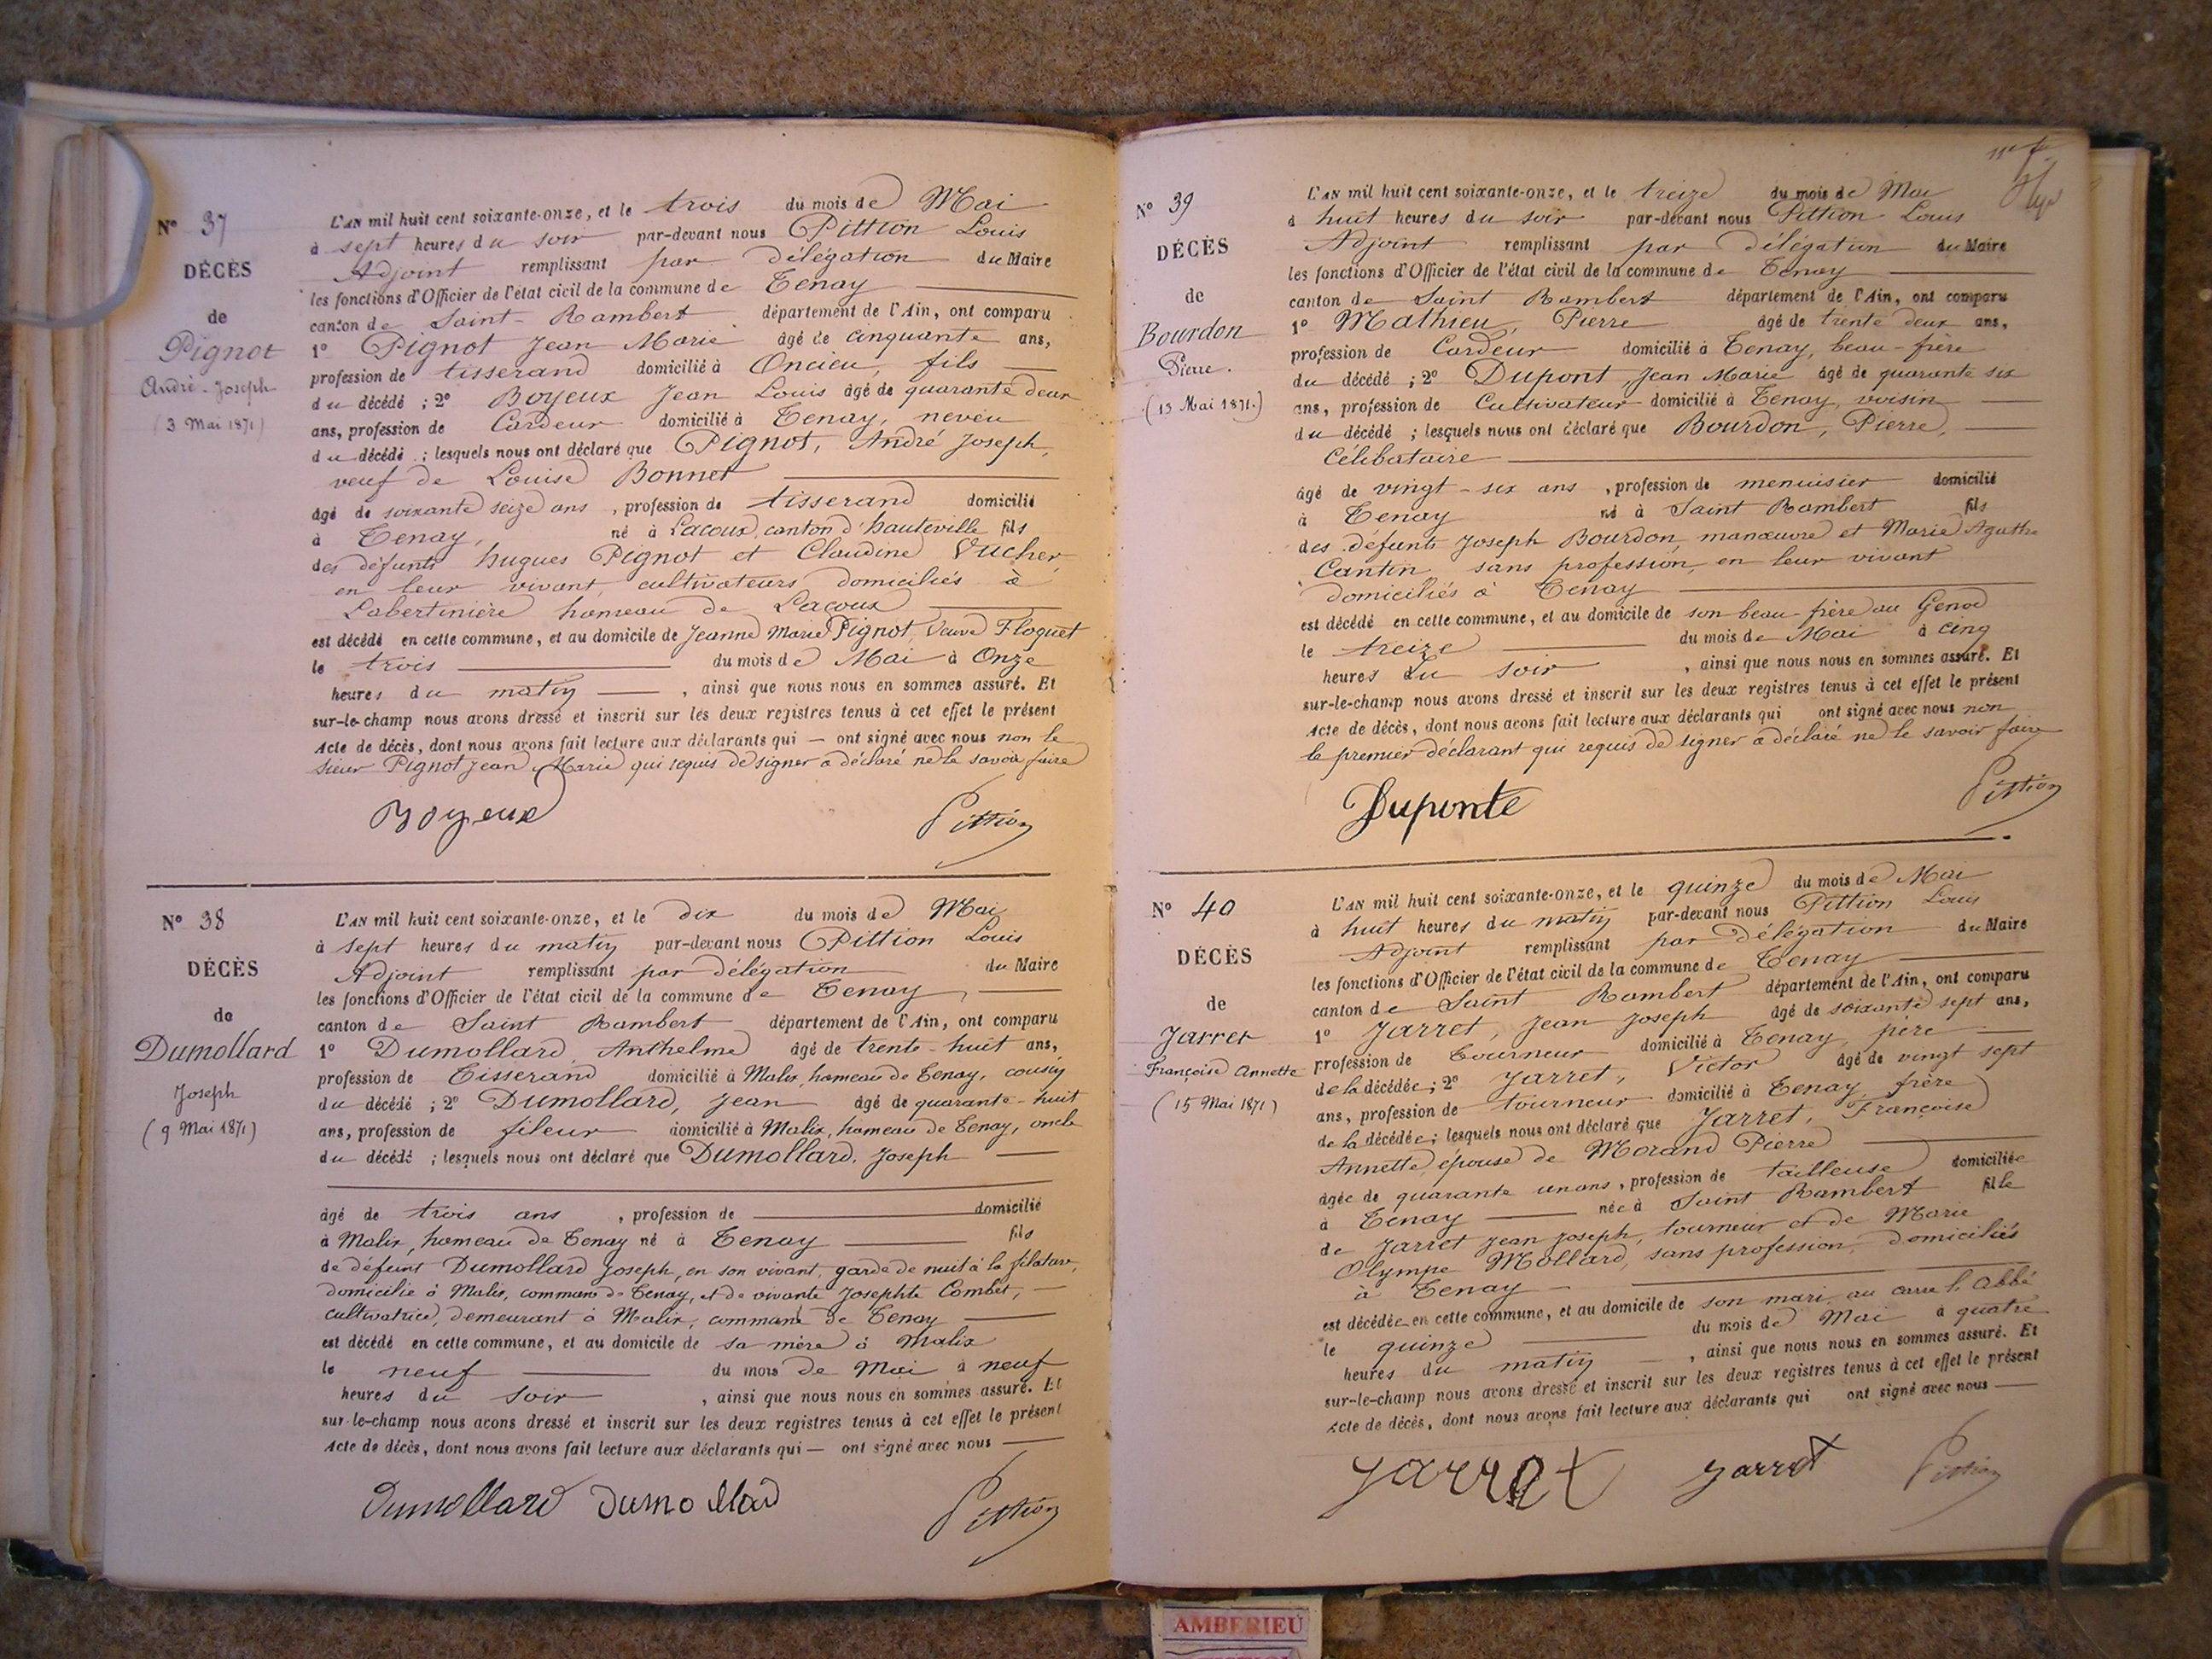 Nº 37
DÉCÈS
de
Pignot
André-Joseph
(3 Mai 1871)
L'AN mil huit cent soixante-onze, et le trois du mois de Mai
à sept heures du soir par-devant nous Pittion Louis
Adjoint remplissant par délégation du Maire
les fonctions d'Officier de l'état civil de la commune de Tenay
canton de Saint-Rambert département de l'Ain, ont comparu
1º Pignot Jean Marie âgé de cinquante ans,
profession de tisserand domicilié à Oncieu, fils
du décédé ; 2º Boyeux Jean Louis âgé de quarante deux
ans, profession de Cardeur domicilié à Tenay, neveu
du décédé ; lesquels nous ont déclaré que Pignot, André Joseph,
veuf de Louise Bonnet
âgé de soixante seize ans, profession de tisserand domicilié
à Tenay, né à Lacoux, canton d'hauteville fils
des défunts hugues Pignot et Claudine Vucher,
en leur vivant, cultivateurs domiciliés à
Labertinière hameau de Lacoux
est décédé en cette commune, et au domicile de Jeanne Marie Pignot, Veuve Floquet
le trois du mois de Mai à Onze
heures du matin, ainsi que nous nous en sommes assuré. Et
sur-le-champ nous avons dressé et inscrit sur les deux registres tenus à cet effet le présent
Acte de décès, dont nous avons fait lecture aux déclarants qui — ont signé avec nous non le
sieur Pignot Jean Marie qui requis de signer a déclaré ne le savoir faire
Boyeux Pittion
Nº 38
DÉCÈS
de
Dumollard
Joseph
(9 Mai 1871)
L'AN mil huit cent soixante-onze, et le dix du mois de Mai
à sept heures du matin par-devant nous Pittion Louis
Adjoint remplissant par délégation du Maire
les fonctions d'Officier de l'état civil de la commune de Tenay,
canton de Saint Rambert département de l'Ain, ont comparu
1º Dumollard, Anthelme âgé de trente-huit ans,
profession de Tisserand domicilié à Malix, hameau de Tenay, cousin
du décédé ; 2º Dumollard, Jean âgé de quarante-huit
ans, profession de fileur domicilié à Malix, hameau de Tenay, oncle
du décédé ; lesquels nous ont déclaré que Dumollard, Joseph
âgé de trois ans, profession de domicilié
à Malix, hameau de Tenay né à Tenay fils
de défunt Dumollard Joseph, en son vivant, garde de nuit à la filature,
domicilié à Malix, commune de Tenay, et de vivante Josephte Combet,
cultivatrice, demeurant à Malix, commune de Tenay
est décédé en cette commune, et au domicile de sa mère à Malix
le neuf du mois de Mai à neuf
heures du soir, ainsi que nous nous en sommes assuré. Et
sur-le-champ nous avons dressé et inscrit sur les deux registres tenus à cet effet le présent
Acte de décès, dont nous avons fait lecture aux déclarants qui — ont signé avec nous
Dumollard Dumollad Pittion
Nº 39
DÉCÈS
de
Bourdon
Pierre.
(13 Mai 1871.)
L'AN mil huit cent soixante-onze, et le treize du mois de Mai
à huit heures du soir par-devant nous Pittion Louis
Adjoint remplissant par délégation du Maire
les fonctions d'Officier de l'état civil de la commune de Tenay
canton de Saint Rambert département de l'Ain, ont comparu
1º Mathieu, Pierre âgé de trente deux ans,
profession de Cardeur domicilié à Tenay, beau-frère
du décédé ; 2º Dupont, Jean Marie âgé de quarante six
ans, profession de Cultivateur domicilié à Tenay, voisin
du décédé ; lesquels nous ont déclaré que Bourdon, Pierre,
Célibataire
âgé de vingt-six ans, profession de menuisier domicilié
à Tenay né à Saint Rambert fils
des défunts Joseph Bourdon, manœuvre et Marie Agathe
Cantin sans profession, en leur vivant
domiciliés à Tenay
est décédé en cette commune, et au domicile de son beau-frère au Genod
le treize du mois de Mai à cinq
heures du soir, ainsi que nous nous en sommes assuré. Et
sur-le-champ nous avons dressé et inscrit sur les deux registres tenus à cet effet le présent
Acte de décès, dont nous avons fait lecture aux déclarants qui ont signé avec nous non
le premier déclarant qui requis de signer a déclaré ne le savoir faire
Duponte Pittion
Nº 40
DÉCÈS
de
Jarret
Françoise Annette
(15 Mai 1871)
L'AN mil huit cent soixante-onze, et le quinze du mois de Mai
à huit heures du matin par-devant nous Pittion Louis
Adjoint remplissant par délégation du Maire
les fonctions d'Officier de l'état civil de la commune de Tenay
canton de Saint Rambert département de l'Ain, ont comparu
1º Jarret, Jean Joseph âgé de soixante sept ans,
profession de Tourneur domicilié à Tenay, père
de la décédée ; 2º Jarret, Victor âgé de vingt sept
ans, profession de tourneur domicilié à Tenay, frère
de la décédée ; lesquels nous ont déclaré que Jarret, Françoise
Annette, épouse de Morand Pierre
âgée de quarante un ans, profession de tailleuse domiciliée
à Tenay née à Saint Rambert fille
de Jarret Jean Joseph, tourneur et de Marie
Olympe Mollard, sans profession, domiciliés
à Tenay
est décédée en cette commune, et au domicile de son mari, au carre l'Abbé
le quinze du mois de Mai à quatre
heures du matin, ainsi que nous nous en sommes assuré. Et
sur-le-champ nous avons dressé et inscrit sur les deux registres tenus à cet effet le présent
Acte de décès, dont nous avons fait lecture aux déclarants qui ont signé avec nous
Jarret Jarret Pittion
AMBERIEU